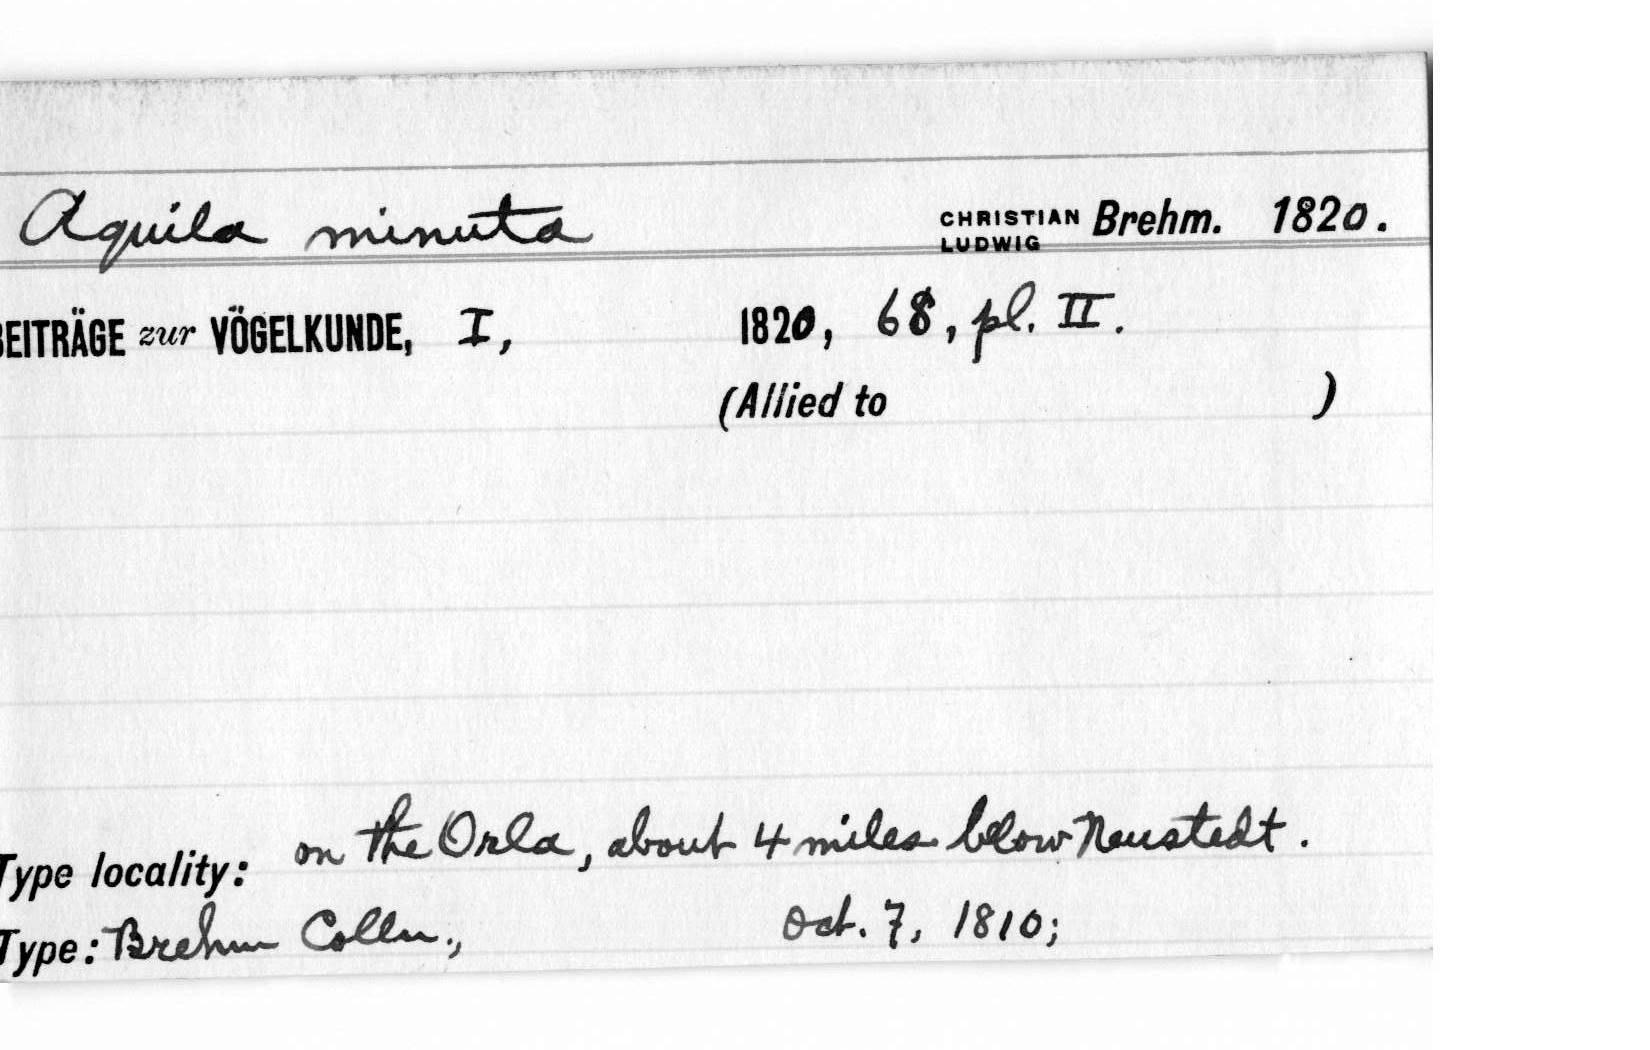 Aquila minuta CHRISTIAN LUDWIG Brehm. 1820.
BEITRÄGE zur VÖGELKUNDE, I, 1820, 68, pl. II.
(Allied to )
Type locality: on the Orla, about 4 miles below Neustedt.
Type: Brehm Colln., Oct. 7, 1810;